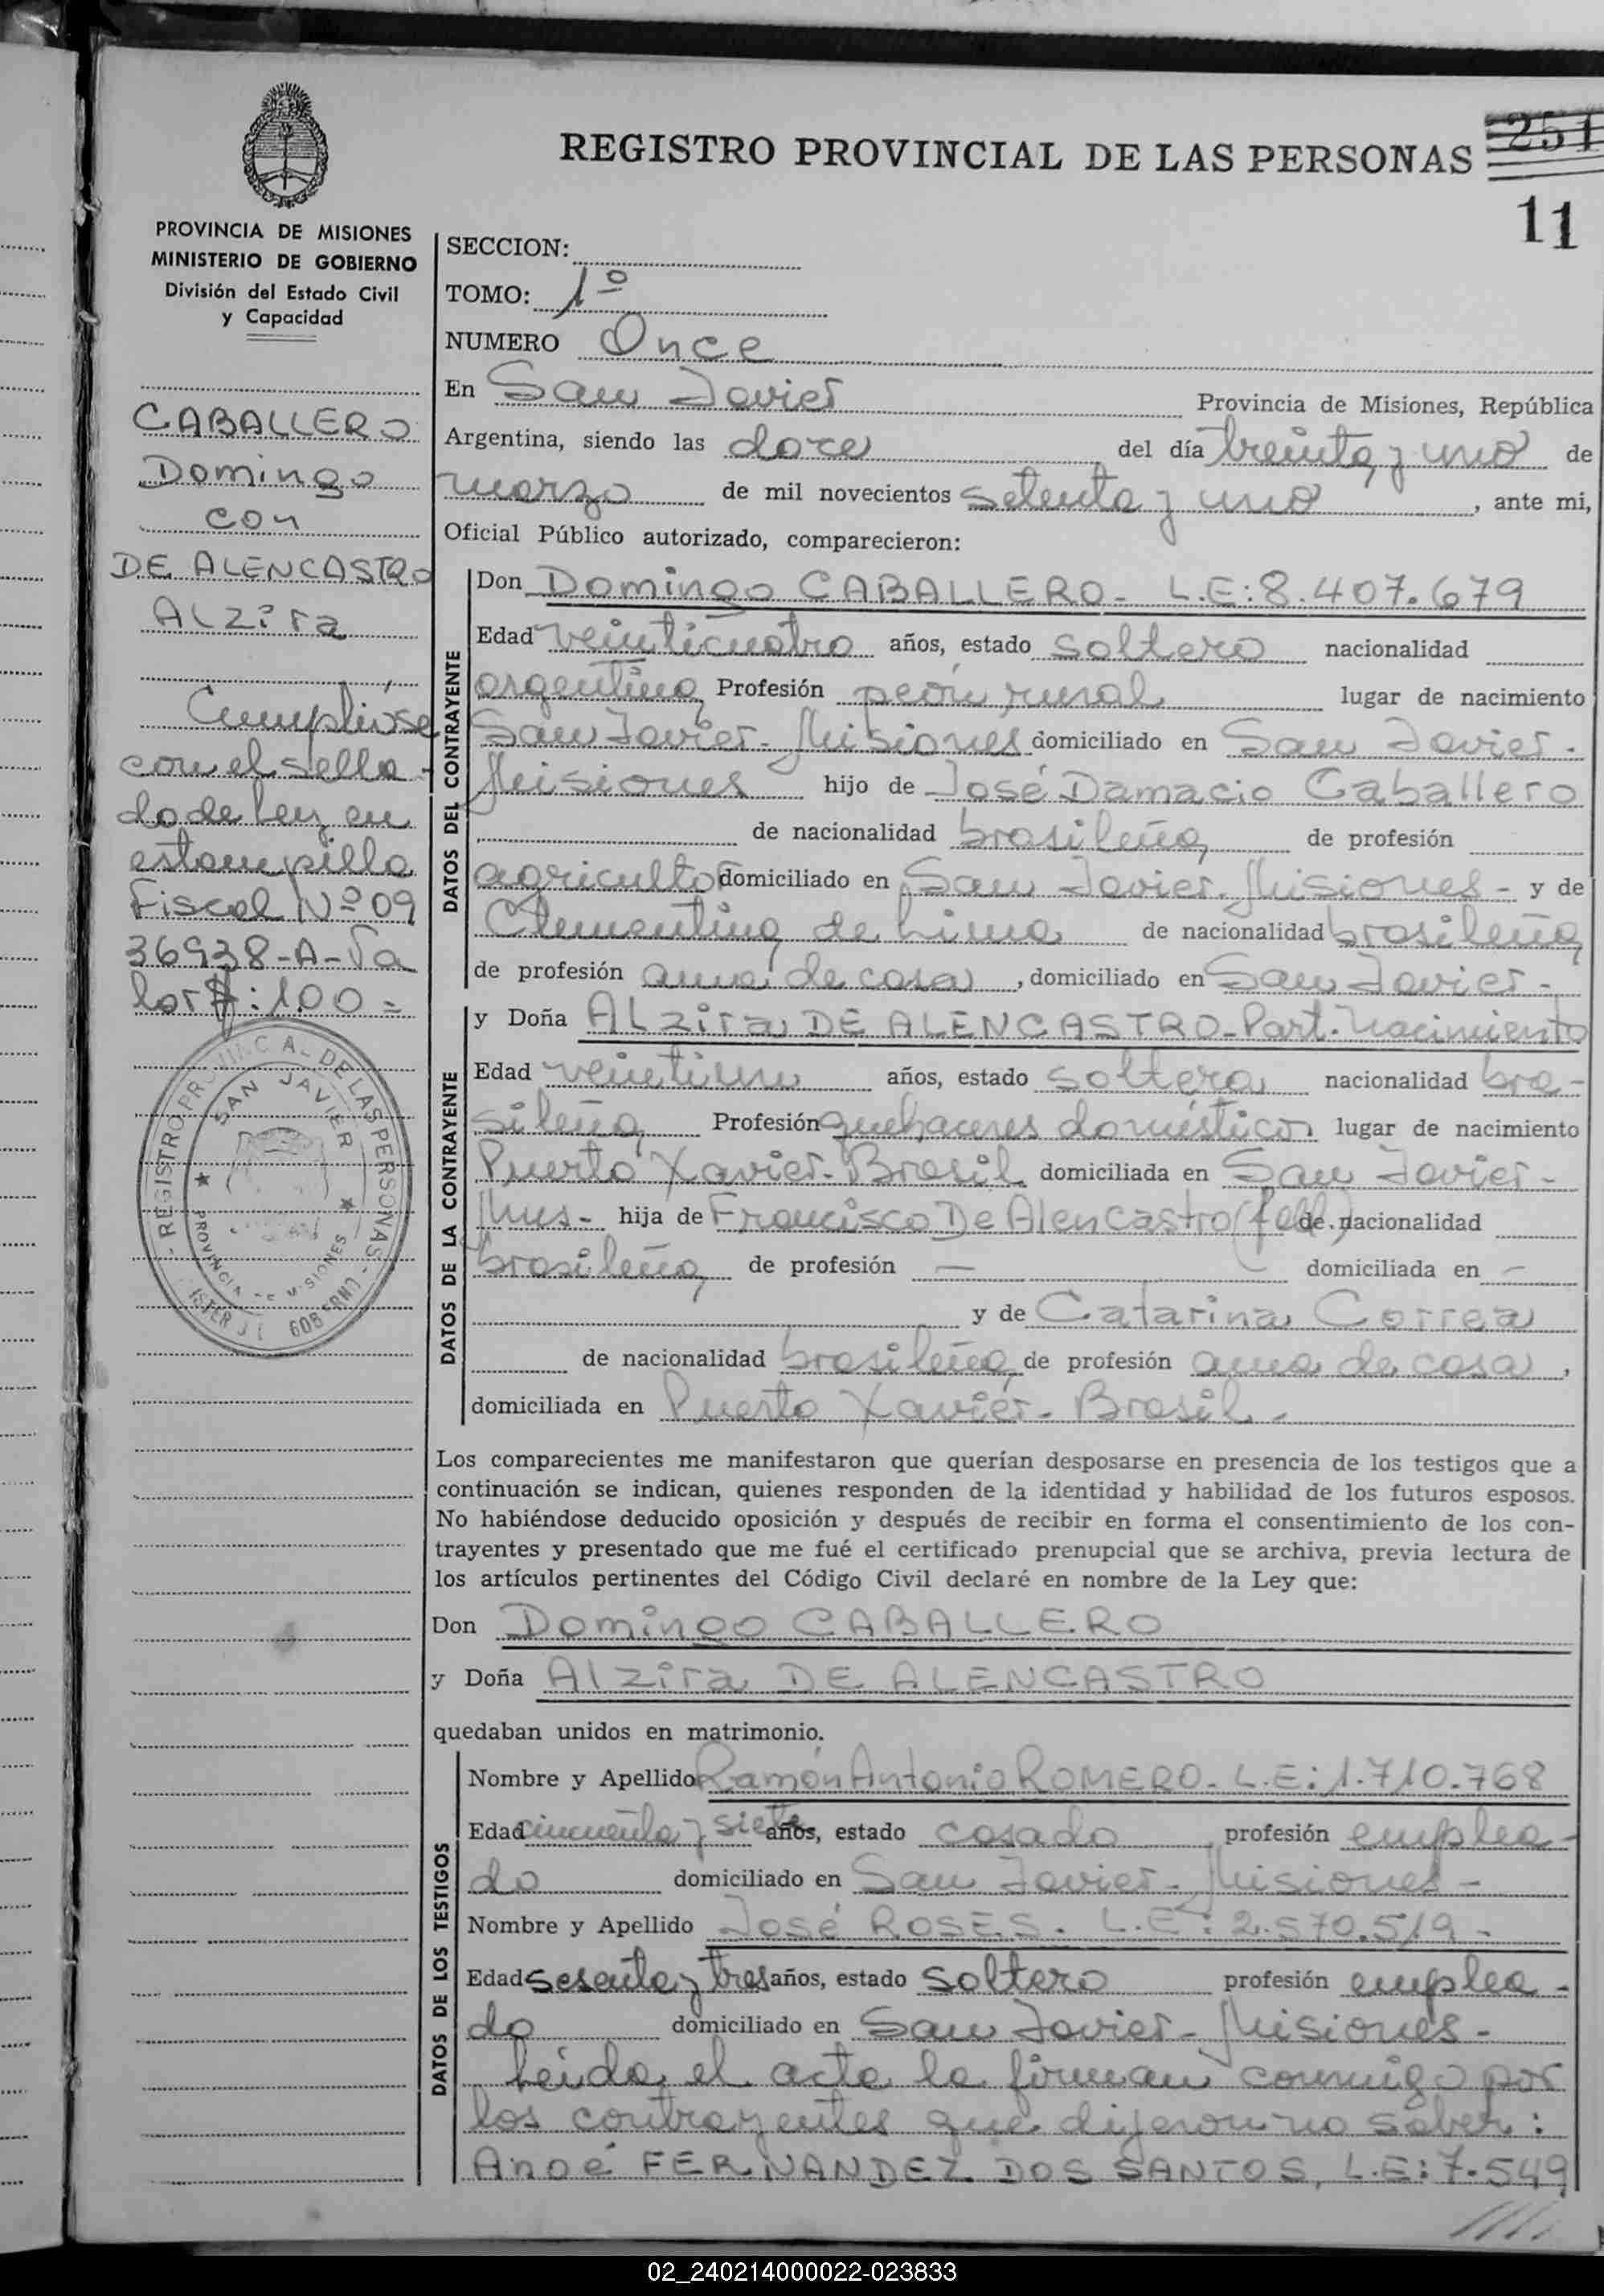 REGISTRO PROVINCIAL DE LAS PERSONAS
251
11
PROVINCIA DE MISIONES
MINISTERIO DE GOBIERNO
División del Estado Civil
y Capacidad
CABALLERO
Domingo
con
DE ALENCASTRO
Alzira
Cumplióse
con el sella-
do de Ley en
estampilla
Fiscal Nº 09
36938-A-Va
lor $: 1.00=
REGISTRO PROVINCIAL DE LAS PERSONAS
SAN JAVIER
PROVINCIA DE MISIONES
SECCION:
TOMO: 1º
NUMERO Once
En San Javier Provincia de Misiones, República
Argentina, siendo las doce del día treinta y uno de
marzo de mil novecientos setenta y uno, ante mi,
Oficial Público autorizado, comparecieron:
DATOS DEL CONTRAYENTE
Don Domingo CABALLERO- L.E:8.407.679
Edad veinticuatro años, estado soltero nacionalidad
argentina Profesión peón rural lugar de nacimiento
San Javier- Misiones domiciliado en San Javier-
Misiones hijo de José Damacio Caballero
de nacionalidad brasileña de profesión
agricultor domiciliado en San Javier-Misiones- y de
Clementina de Lima de nacionalidad brasileña
de profesión ama de casa, domiciliado en San Javier-
DATOS DE LA CONTRAYENTE
y Doña Alzira DE ALENCASTRO-Part. Nacimiento
Edad años, estado soltera nacionalidad bra-
sileña Profesión quehaceres doméstico lugar de nacimiento
Puerto Xavier-Brasil domiciliada en San Javier-
Mnes- hija de Francisco De Alencastro (fall) de nacionalidad
brasileña de profesión — domiciliada en —
y de Catarina Correa
de nacionalidad brasileña de profesión ama de casa,
domiciliada en Puerto Xavier- Brasil-
Los comparecientes me manifestaron que querían desposarse en presencia de los testigos que a
continuación se indican, quienes responden de la identidad y habilidad de los futuros esposos.
No habiéndose deducido oposición y después de recibir en forma el consentimiento de los con-
trayentes y presentado que me fué el certificado prenupcial que se archiva, previa lectura de
los artículos pertinentes del Código Civil declaré en nombre de la Ley que:
Don Domingo CABALLERO
y Doña Alzira DE ALENCASTRO
quedaban unidos en matrimonio.
DATOS DE LOS TESTIGOS
Nombre y Apellido Ramón Antonio ROMERO- L.E:1.710.768
Edad cincuenta y siete años, estado casado profesión emplea-
do domiciliado en San Javier- Misiones-
Nombre y Apellido José ROSES. L.E: 2.570.519-
Edad sesenta y tres años, estado soltero profesión emplea-
do domiciliado en San Javier- Misiones-
Leída el acta la firman conmigo por
los contrayentes que dijeron no saber:
Anoé FERNANDEZ DOS SANTOS, L.E: 7.549
02_240214000022-023833